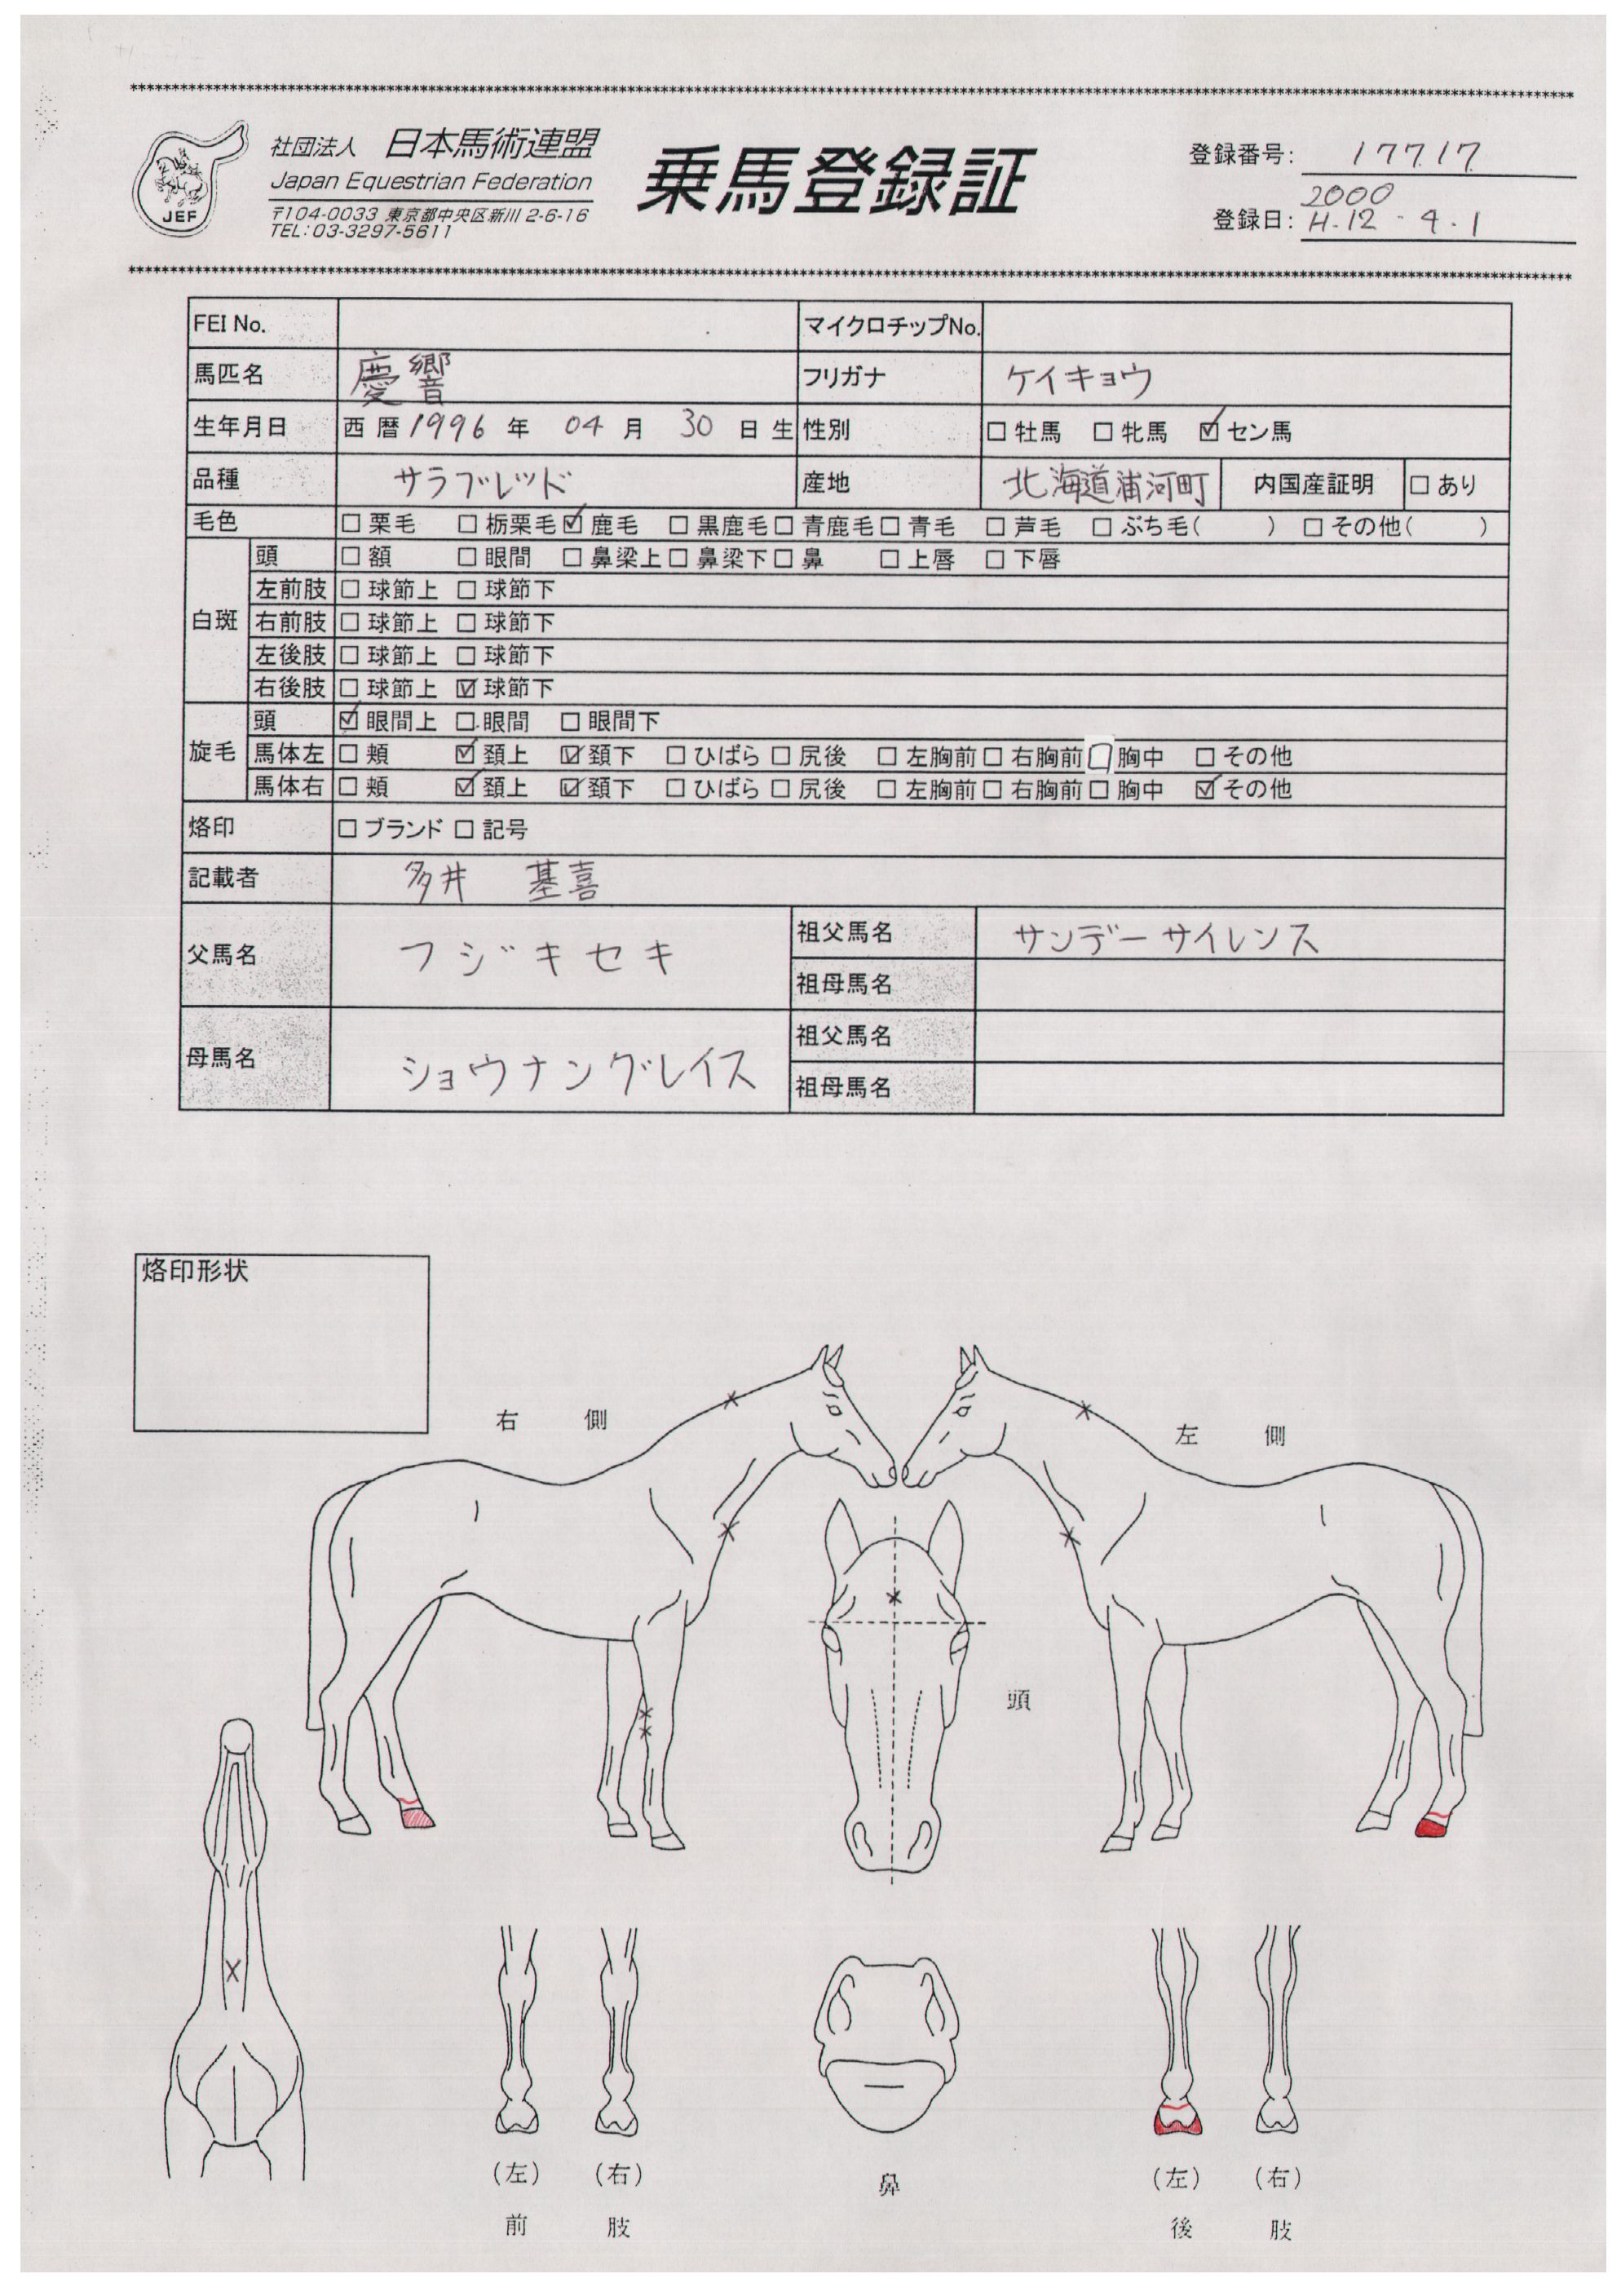 社団法人 日本馬術連盟
Japan Equestrian Federation
〒104-0033 東京都中央区新川 2-6-16
TEL:03-3297-5611
JEF
乗馬登録証
登録番号: 17717
2000
登録日: H.12-4.1
FEI No. マイクロチップNo.
馬匹名 慶響 フリガナ ケイキョウ
生年月日 西暦1996年 04月 30日生 性別 □牡馬 □牝馬 ☑セン馬
品種 サラブレッド 産地 北海道浦河町 内国産証明 □あり
毛色 □栗毛 □栃栗毛 ☑鹿毛 □黒鹿毛 □青鹿毛 □青毛 □芦毛 □ぶち毛( ) □その他( )
白斑 頭 □額 □眼間 □鼻梁上 □鼻梁下 □鼻 □上唇 □下唇
左前肢 □球節上 □球節下
右前肢 □球節上 □球節下
左後肢 □球節上 □球節下
右後肢 □球節上 ☑球節下
旋毛 頭 ☑眼間上 □眼間 □眼間下
馬体左 □頬 ☑頚上 ☑頚下 □ひばら □尻後 □左胸前 □右胸前 □胸中 □その他
馬体右 □頬 ☑頚上 ☑頚下 □ひばら □尻後 □左胸前 □右胸前 □胸中 ☑その他
烙印 □ブランド □記号
記載者 多井 基喜
父馬名 フジキセキ 祖父馬名 サンデーサイレンス
祖母馬名
母馬名 ショウナングレイス 祖父馬名
祖母馬名
烙印形状
右側
左側
頭
(左) (右)
前肢
鼻
(左) (右)
後肢